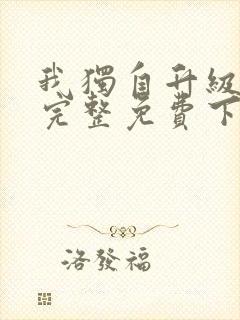 我獨自升級
完整免費下
洛發福